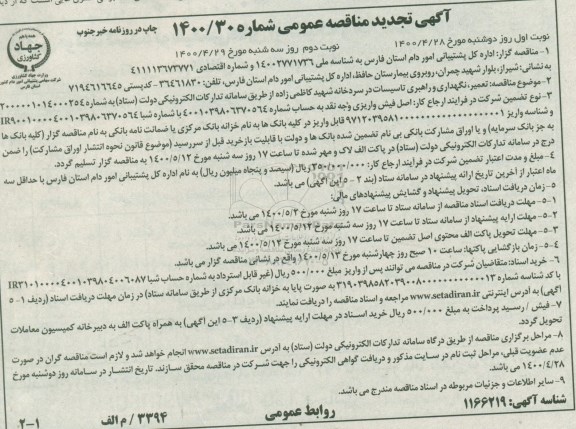 آگهی تجدید مناقصه عمومی شماره ۱۴۰۰/۳۰
چاپ در روزنامه خبر جنوب
جهاد کشاورزی
نوبت اول روز دوشنبه مورخ ۱۴۰۰/۴/۲۸ نوبت دوم روز سه شنبه مورخ ۱۴۰۰/۴/۲۹
۱- مناقصه گزار: اداره کل پشتیبانی امور دام استان فارس به شناسه ملی ۱۴۰۰۲۷۷۱۷۳۶ و شماره اقتصادی ۴۱۱۱۱۳۶۷۳۷۷۱
به نشانی: شیراز، بلوار شهید چمران، روبروی بیمارستان حافظ، اداره کل پشتیبانی امور دام استان فارس، تلفن: ۳۶۴۶۱۸۳۰ - کدپستی ۷۱۹۴۶۱۶۶۴۵
۲- موضوع مناقصه: تعمیر، نگهداری و راهبری تاسیسات در سردخانه شهید کاظمی زاده از طریق سامانه تدارکات الکترونیکی دولت (ستاد) به شماره ۲۰۰۰۰۰۱۰۱۴۰۰۰۲۵۴
۳- نوع تضمین شرکت در فرایند ارجاع کار: اصل فیش واریزی وجه نقد به حساب شماره ۴۰۰۱۰۳۹۸۰۶۳۷۰۵۶۴ با شماره شبا
و شناسه واریز قابل واریز در کلیه بانک ها به نام خزانه بانک مرکزی یا ضمانت نامه بانکی به نام مناقصه گزار (کلیه بانک ها
به جز بانک سرمایه) و یا اوراق مشارکت بانکی بی نام تضمین شده بانک ها و دولت با قابلیت بازخرید قبل از سررسید (موضوع قانون نحوه انتشار اوراق مشارکت) را ضمن
درج در سامانه تدارکات الکترونیکی دولت (ستاد) در پاکت الف لاک و مهر شده تا ساعت ۱۷ روز سه شنبه مورخ ۱۴۰۰/۵/۱۲ به مناقصه گزار تسلیم گردد.
۴- مبلغ و مدت اعتبار تضمین شرکت در فرایند ارجاع کار: ریال (سیصد و پنجاه میلیون ریال) به نام اداره کل پشتیبانی امور دام استان فارس با حداقل سه
ماه اعتبار از آخرین تاریخ ارائه پیشنهاد در سامانه ستاد (بند ۲-۵ این آگهی) می باشد.
۵- زمان دریافت اسناد، تحویل پیشنهاد و گشایش پیشنهادهای مالی:
۱-۵- مهلت دریافت اسناد مناقصه از سامانه ستاد تا ساعت ۱۷ روز شنبه مورخ ۱۴۰۰/۵/۲ می باشد.
۲-۵- مهلت ارایه پیشنهاد از سامانه ستاد تا ساعت ۱۷ روز سه شنبه مورخ ۱۴۰۰/۵/۱۲ می باشد.
۳-۵- مهلت تحویل پاکت الف محتوی اصل تضمین تا ساعت ۱۷ روز سه شنبه مورخ ۱۴۰۰/۵/۱۲ می باشد.
۴-۵- زمان بازگشایی پاکتها: ساعت ۱۰ صبح روز چهارشنبه مورخ ۱۴۰۰/۵/۱۳ واقع در نشانی مناقصه گزار می باشد.
۶- خرید اسناد: متقاضیان شرکت در مناقصه می توانند پس از واریز مبلغ ۵۰۰/۰۰۰ ریال (غیر قابل استرداد) به شماره حساب شبا
با کد شناسه شماره به صورت پایا به خزانه بانک مرکزی از طریق سامانه ستاد) در زمان مهلت دریافت اسناد (ردیف ۱-۵
آگهی) به آدرس اینترنتی www.setadiran.ir مراجعه و اسناد مناقصه را دریافت نمایند.
۷- فیش / رسید پرداخت به مبلغ ۵۰۰/۰۰۰ ریال خرید اسناد در مهلت ارایه پیشنهاد (ردیف ۳-۵ این آگهی) به همراه پاکت الف به دبیرخانه کمیسیون معاملات
تحویل گردد.
۸- مراحل برگزاری مناقصه از طریق درگاه سامانه تدارکات الکترونیکی دولت (ستاد) به آدرس www.setadiran.ir انجام خواهد شد و لازم است مناقصه گران در صورت
عدم عضویت قبلی، مراحل ثبت نام در سایت مذکور و دریافت گواهی الکترونیکی را جهت شرکت در مناقصه محقق سازند. تاریخ انتشار در سامانه روز دوشنبه مورخ
۱۴۰۰/۴/۲۸ می باشد.
۹- سایر اطلاعات و جزئیات مربوطه در اسناد مناقصه مندرج می باشد.
شناسه آگهی: ۱۱۶۶۲۱۹ روابط عمومی ۳۳۹۴ / م الف ۲-۱